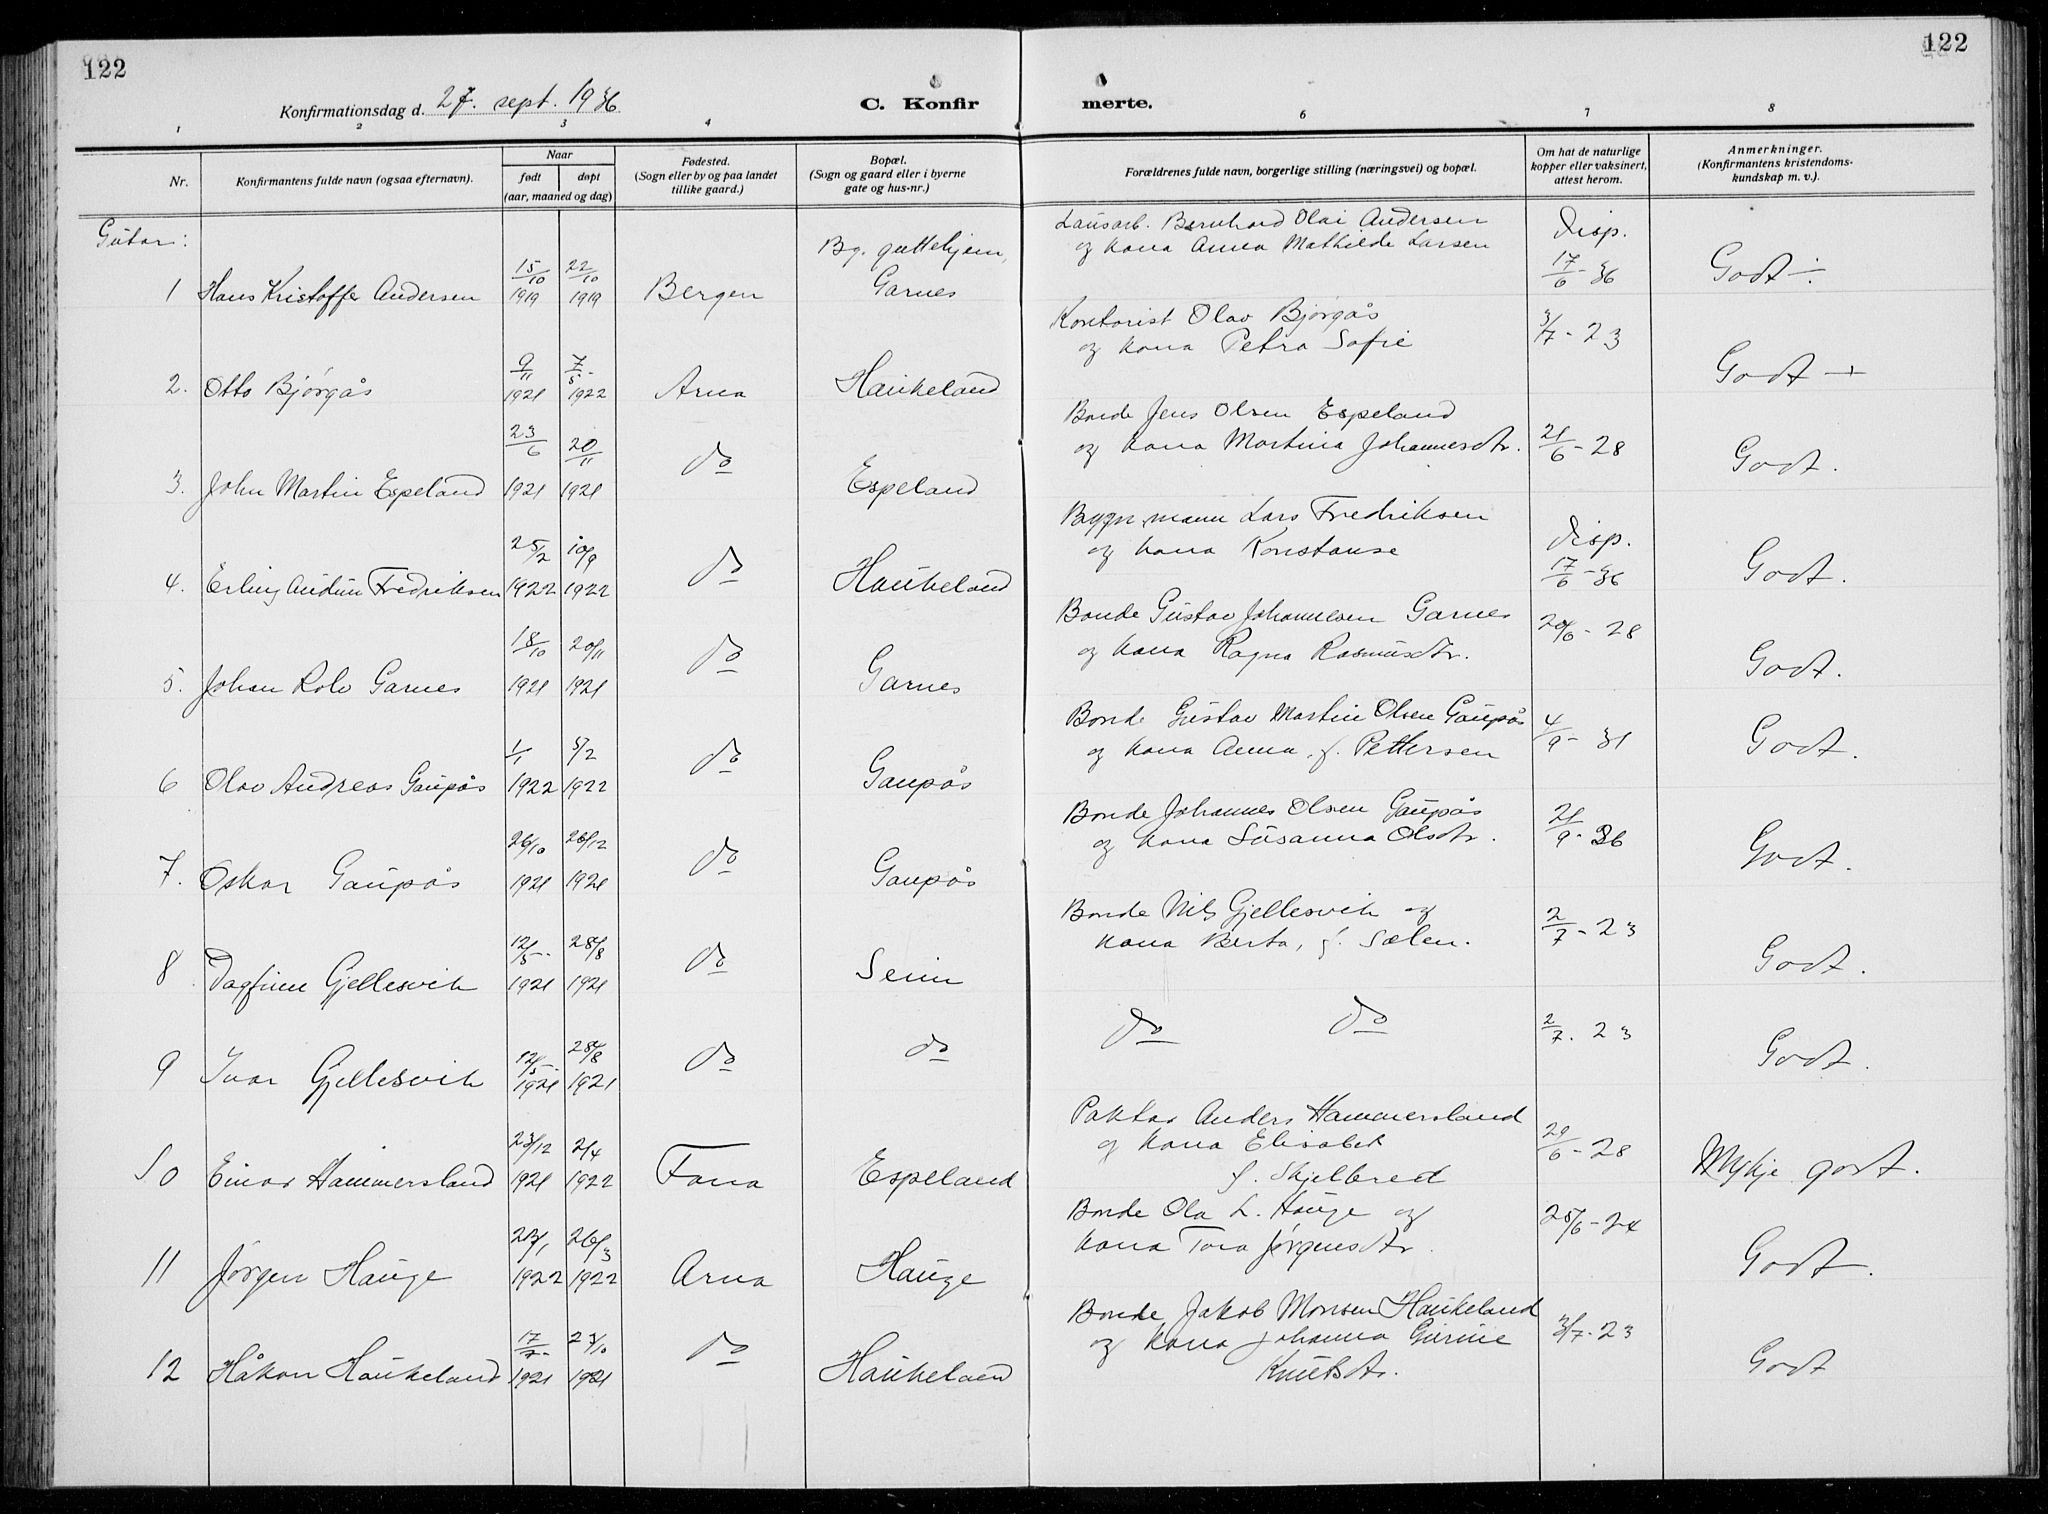 122
122
Konfirmationsdag d. 27. sept. 1936
C. Konfir
merte.
1 2 3 4 6 7 8
Nr.
Konfirmantens fulde navn (ogsaa efternavn).
Naar
født døpt
(aar, maaned og dag)
Fødested.
(Sogn eller by og paa landet
tillike gaard.)
Bopæl.
(Sogn og gaard eller i byerne
gate og hus-nr.)
Forældrenes fulde navn, borgerlige stilling (næringsvei) og bopæl.
Om hat de naturlige
kopper eller vaksinert,
attest herom.
Anmerkninger.
(Konfirmantens kristendoms-
kundskap m. v.).
Gutar:
1 Hans Kristoffer Andersen 15/10 1919 22/10 1919 Bergen Bg. guttehjem, Garnes
Lausarb. Bernhard Olai Andersen
og kona Anna Mathilde Larsen
disp. 17/6 - 36 Godt ÷
2. Otto Bjørgås 9/11 1921 7/5 1922 Arna Haukeland
Kontorist Olav Bjørgås
og kona Petra Sofie
3/7 - 23 Godt +
3. John Martin Espeland 23/6 1921 20/11 1921 do Espeland
Bonde Jens Olsen Espeland
og kona Martina Johannesdtr.
21/6 - 28 Godt.
4. Erling Audun Fredriksen 25/2 1922 10/9 1922 do Haukeland
Bygn.mann Lars Fredriksen
og kona Konstanse
disp. 17/6 - 36 Godt.
5. Johan Rolv Garnes 18/10 1921 20/11 1921 do Garnes
Bonde Gustav Johannesen Garnes
og kona Ragna Rasmusdtr.
20/6 - 28 Godt.
6 Olav Andreas Gaupås 1/1 1922 5/2 1922 do Gaupås
Bonde Gustav Martin Olsen Gaupås
og kona Anna, f. Pettersen
4/9 - 31 Godt.
7. Oskar Gaupås 26/10 1921 26/12 1921 do Gaupås
Bonde Johannes Olsen Gaupås
og kona Susanna Olsdtr.
21/9 - 36 Godt.
8 Dagfinn Gjellesvik 12/5 1921 28/8 1921 do Seim
Bonde Nils Gjellesvik og
kona Berta, f. Sælen.
2/7 - 23 Godt.
9 Ivar Gjellesvik 12/5 1921 28/8 1921 do do
do do
2/7. 23 Godt.
10 Einar Hammersland 23/12 1921 2/4 1922 Fana Espeland
Paktar Anders Hammersland
og kona Elisabet
f. Skjelbred
29/6 - 28 Mykje godt.
11 Jørgen Hauge 23/1 1922 26/3 1922 Arna Hauge
Bonde Ola L. Hauge og
kona Tora Jørgensdtr.
25/6 - 24 Godt.
12 Håkon Haukeland 17/7 1921 23/10 1921 do Haukeland
Bonde Jakob Monsen Haukeland
og kona Johanna Gurine
Knutsdtr.
3/7. 23 Godt